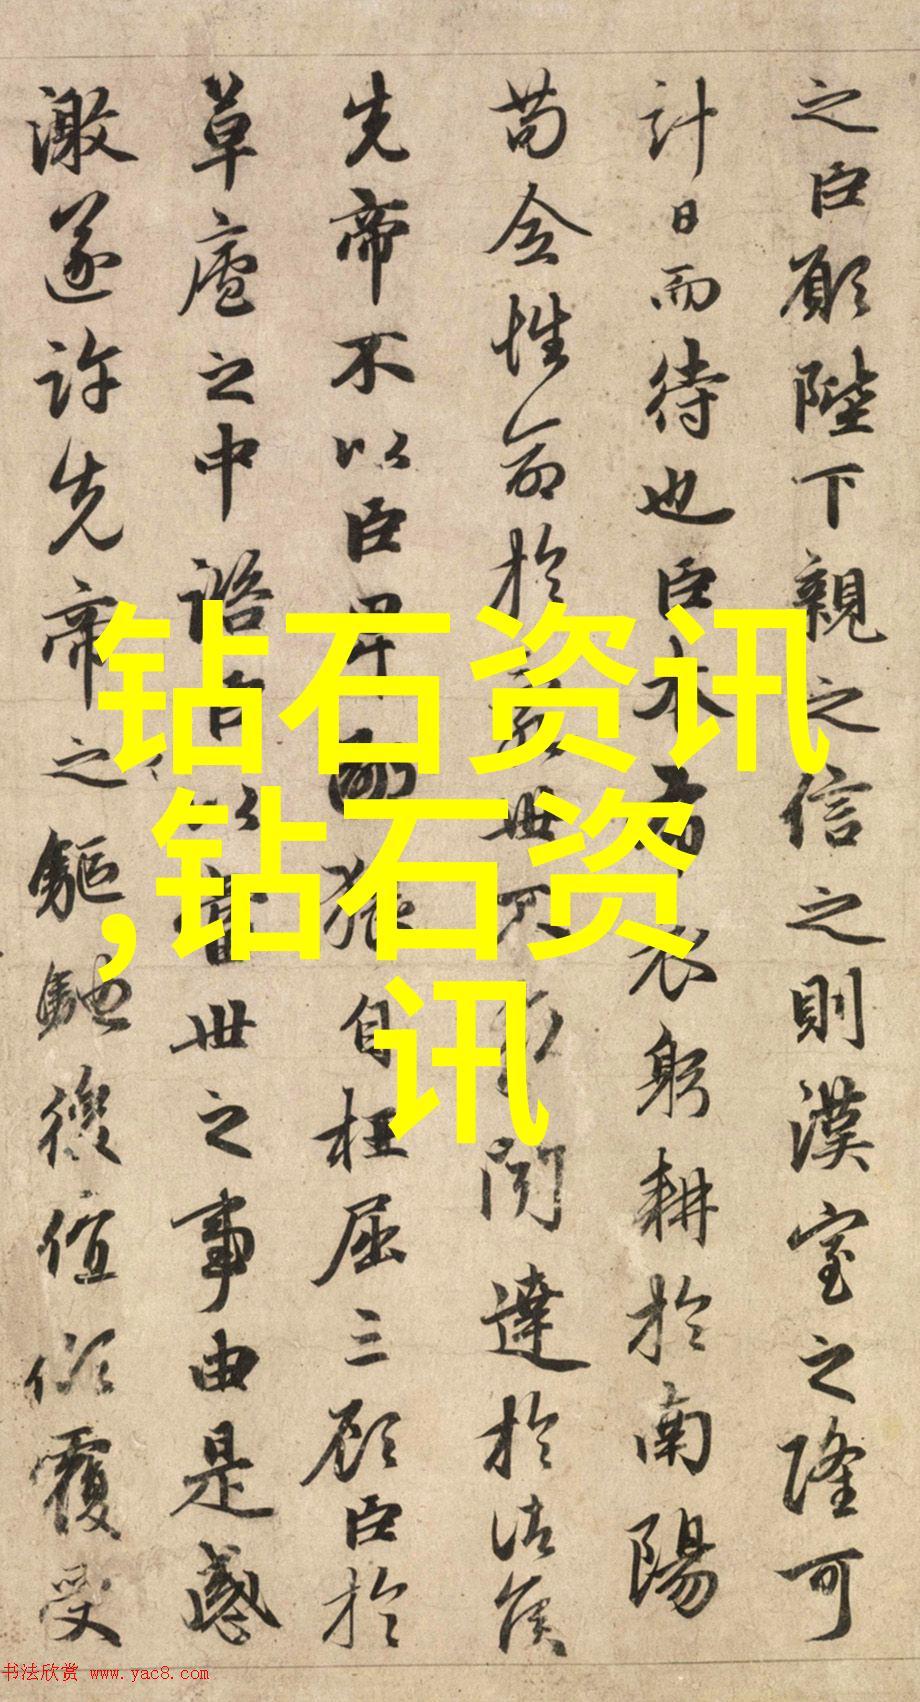 之臣願陛下親之信之則漢室之隆可
計日而待也臣本布衣躬耕於南陽
苟全性命於亂世不求聞達於諸侯
先帝不以臣卑鄙猥自枉屈三顧臣於
草廬之中諮臣以當世之事由是感
激遂許先帝之驅馳後值傾覆受
钻石资讯
,钻石资
讯
书法欣赏 www.yac8.com